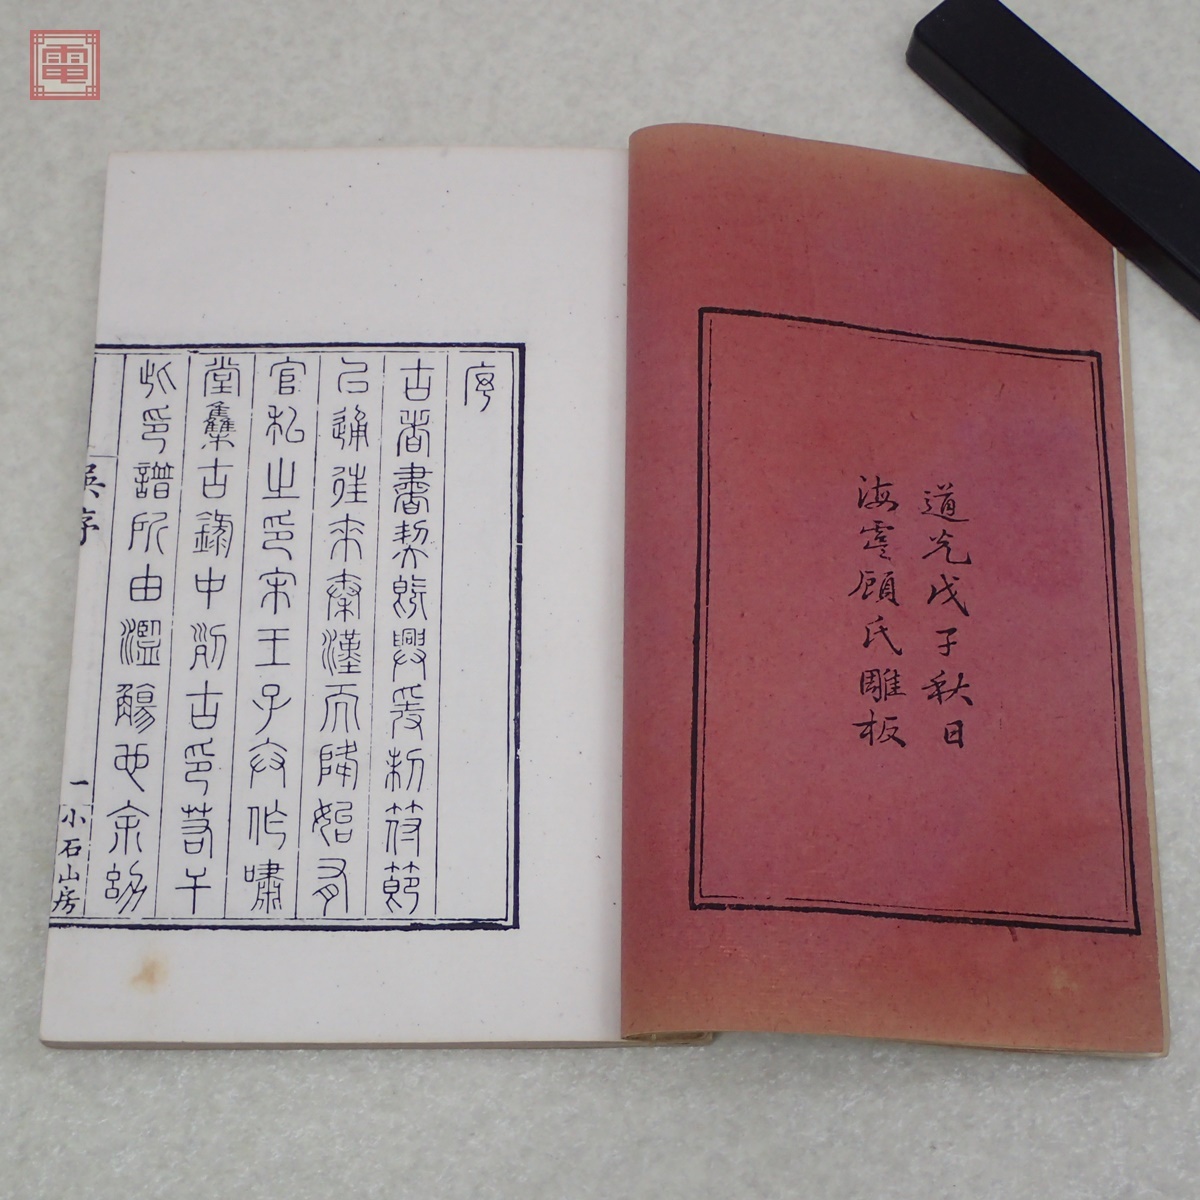 電
道光戊子秋日
海虞顧氏雕板
序
古者書契既興爰制符節
㠯通往來秦漢而降始有
官私之印宋王子弁作嘯
堂集古錄中列古印若干
此印譜所由濫觴也余幼
吳序
一
小石山房